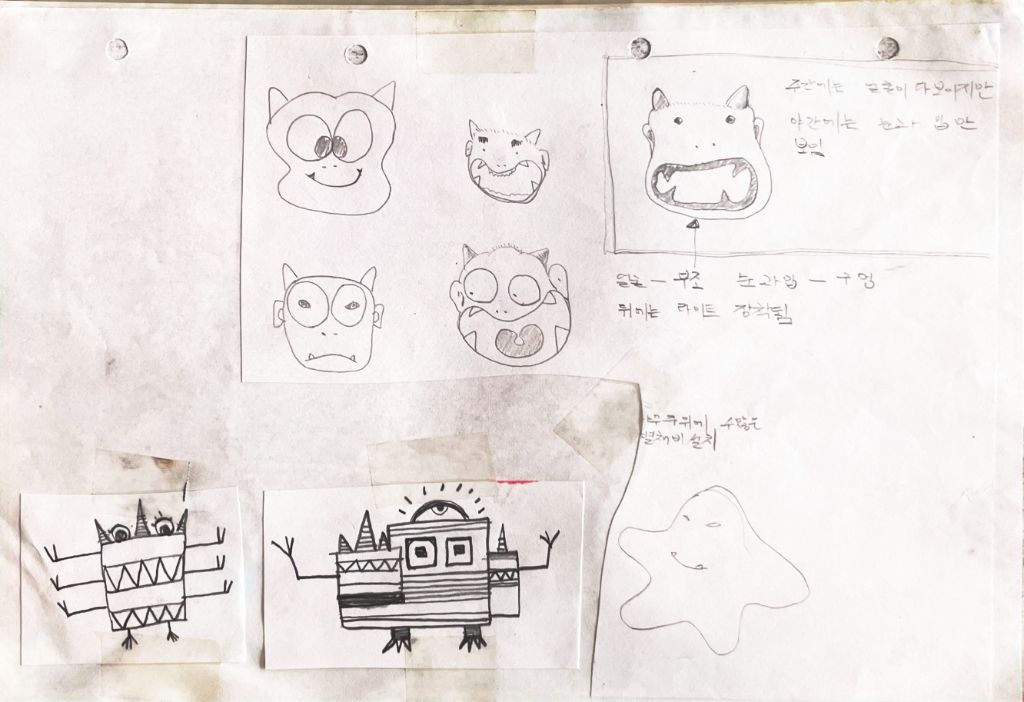 주간에는 얼굴이 다보이지만
야간에는 눈과 입만
보임
얼굴 - 부조 눈과입 - 구멍
뒤에는 라이트 장착됨
나무주위에 수많은
설치